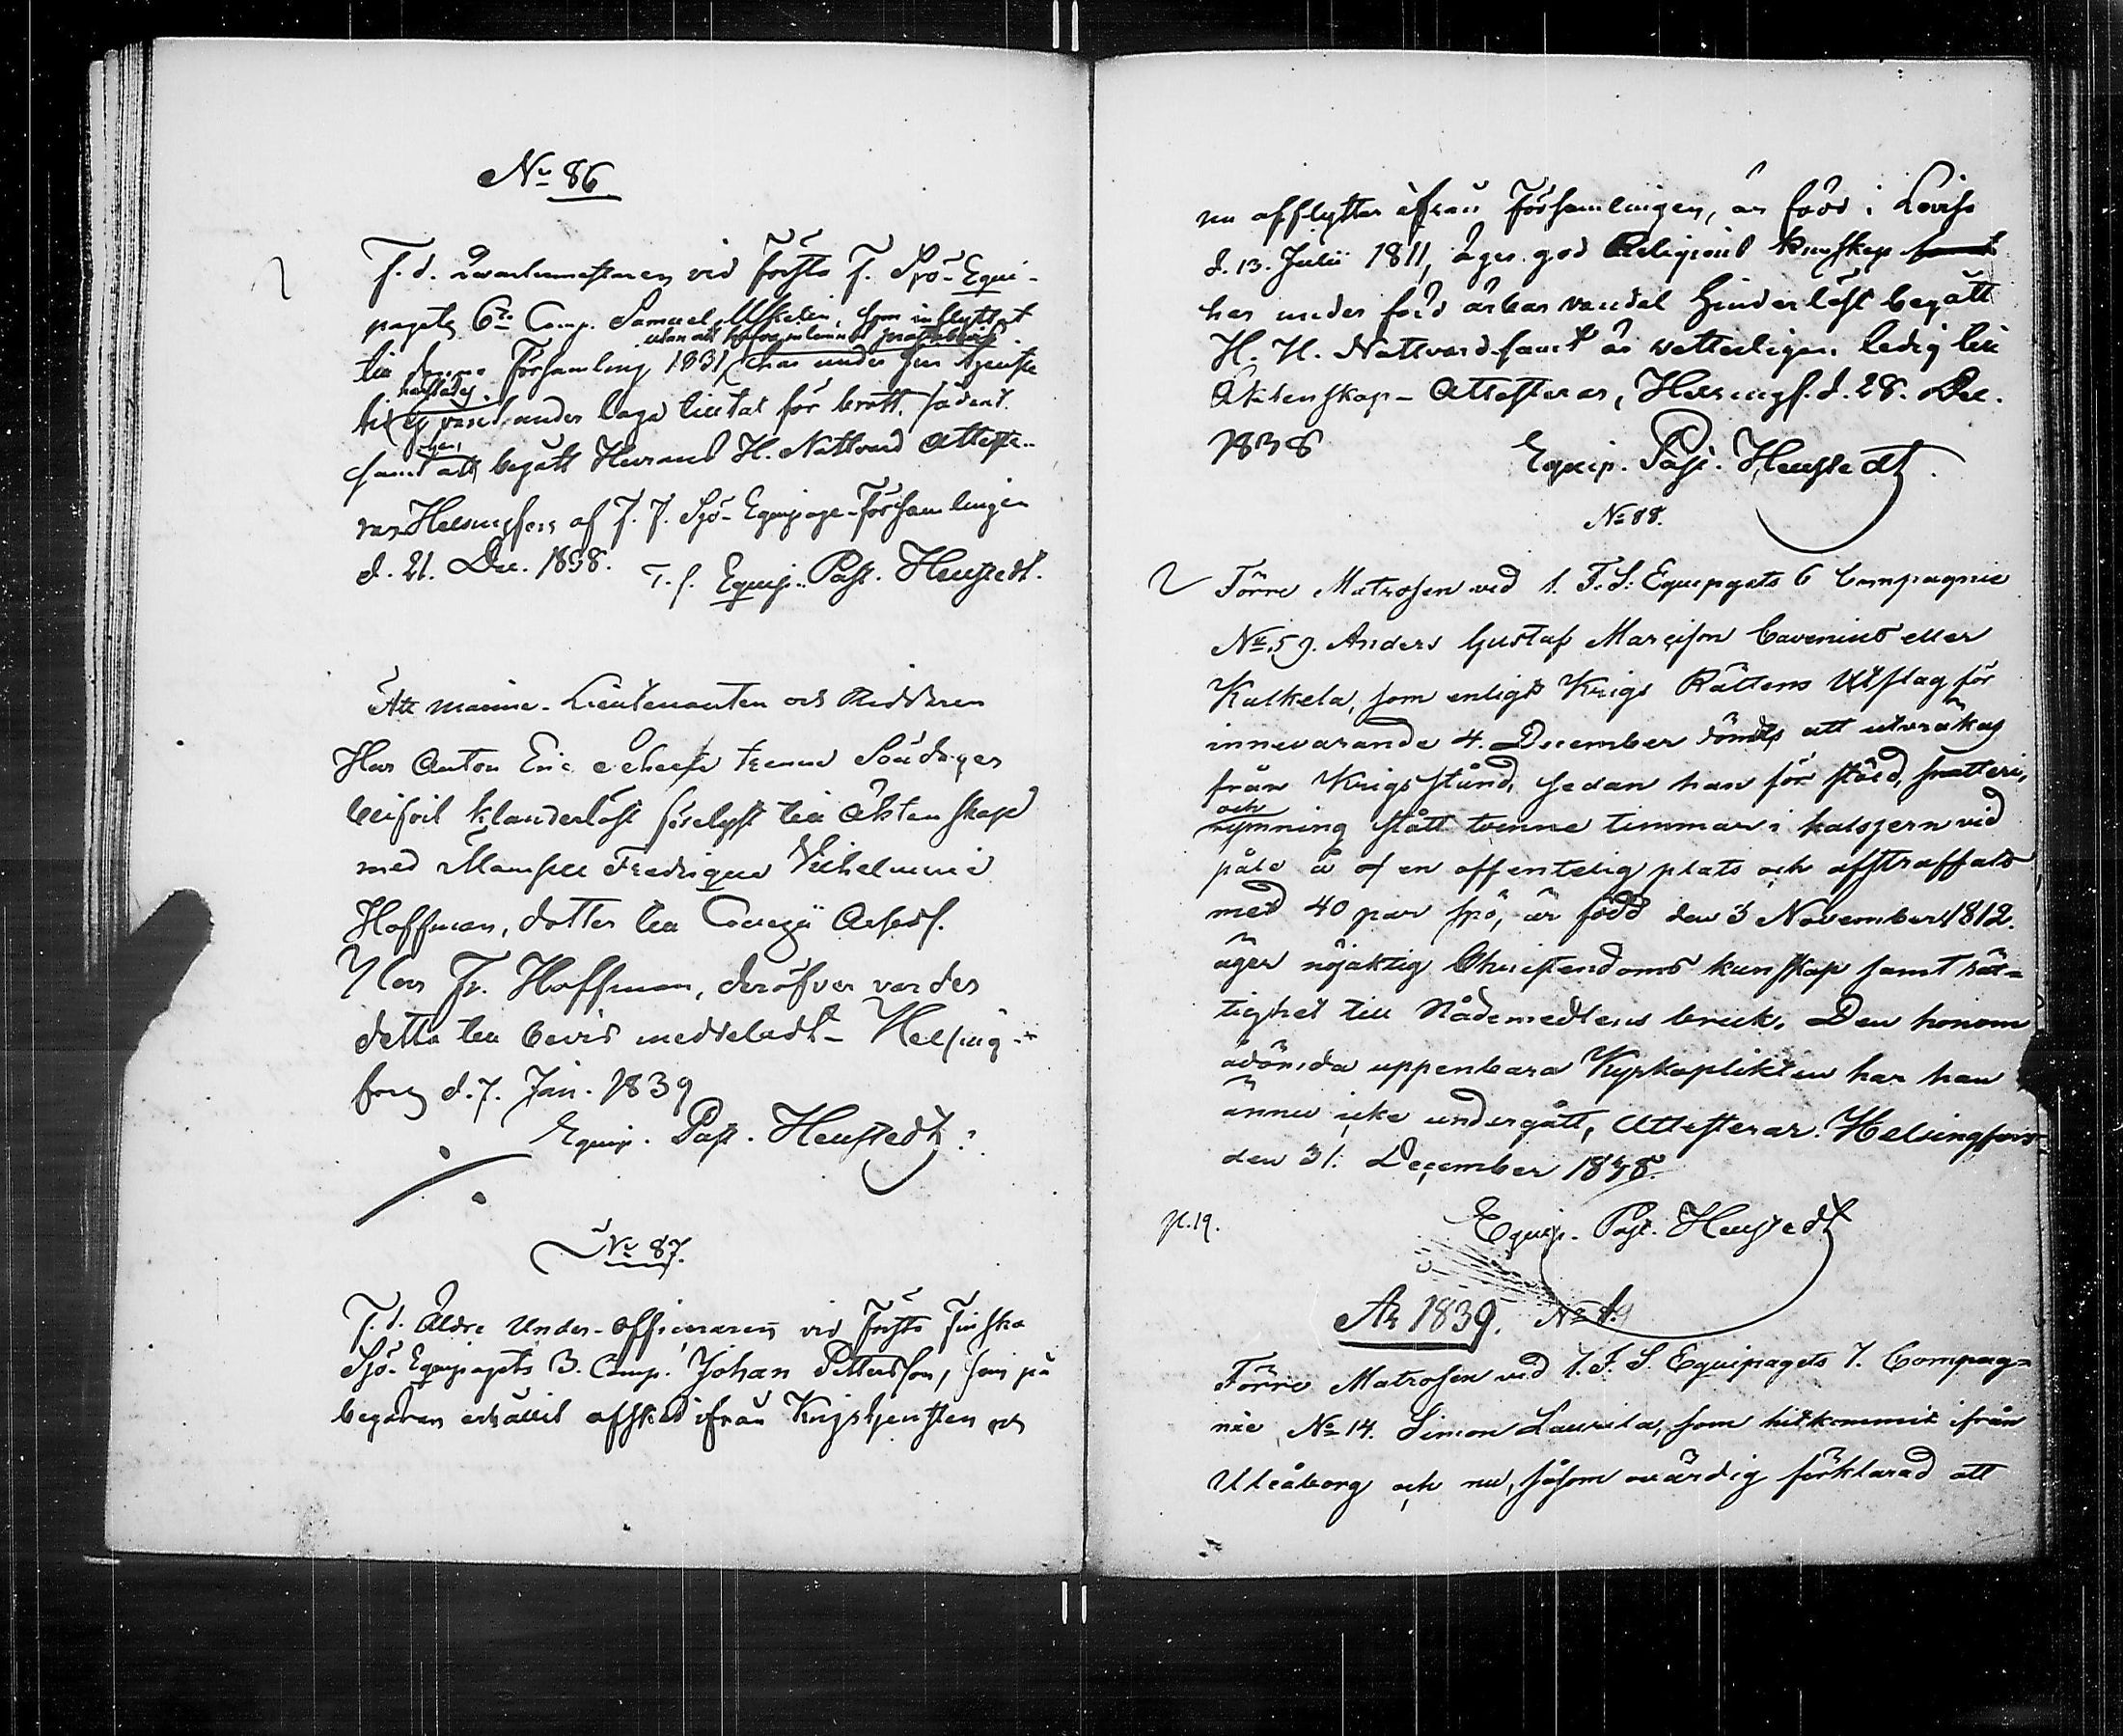 No 86
F. d. Qvartermästaren vid Första F. Sjö-Equi-
pagets 6te Comp. Samuel, som inflyttat
utan att hafva inlemnat prästbevis
till denna Församling 1831, har under sin
härstädes
tid ej varit under laga tilltal för brott,
han
samt att begått Herrans H. Nattvard Atteste-
ras Helsingfors af F. F. Sjö-Equipage-Församlingen
d. 21. Dec. 1838. T. f. Equip. Past. Heustedt.
Att Marine-Lieutenanten och Riddaren
Herr Anton Eric trenne Söndagar
blifvit klanderlöst förelyst till Äktenskap
med Mamsell Fredrique Vilhelmine
Hoffman, dotter till
Herr Fr. Hoffman, deröfver varder
detta till bevis meddeladt - Helsing-
fors d. 7. Jan. 1839
Equip. Past. Heustedt.
No 87.
F. d. Äldre Under-officeraren vid Första Finska
Sjö-Equipagets 3. Comp. Johan Pettersson, som på
begäran erhållit afsked ifrån Krigstjensten och
nu afflyttar ifrån Församlingen, är född i Lovisa
d. 13. Julii 1811, äger god Religions kunskap samt
har under förd ärbar vandel hinderlöst begått
H. H. Nattvard samt är vetterligen ledig till
Äktenskap - Attesterar, Helsingf. d. 28. Dec.
1838
Equip. Past. Heustedt.
No 88.
Förre Matrosen ved 1. F. S. Equipagets 6 Compagnie
No 59. Anders Gustaf Marcison Cavenius eller
Kalkela, som enligt Krigs Rättens Utslag för
innevarande 4. December dömts att utvräkas
från Krigsstånd, sedan han för stöld, snatteri,
och
rymning stått tvenne timmar i halsjern vid
påle å en offentelig plats och afstraffats
med 40 par spö, är född den 3 November 1812.
äger nöjaktig Christendoms kunskap samt rät-
tighet till Nådemedlens bruk. Den honom
ådömda uppenbara Kyrkoplikten har han
ännu icke undergått, Attesterar. Helsingfors
den 31. December 1838.
Equip. Past. Heustedt
År 1839. No 89
Förre Matrosen vid 1. F. S. Equipagets 7. Compag-
nie No 14. Simon Laurila, som hitkommit ifrån
Uleåborg och nu, såsom ovärdig förklarad att